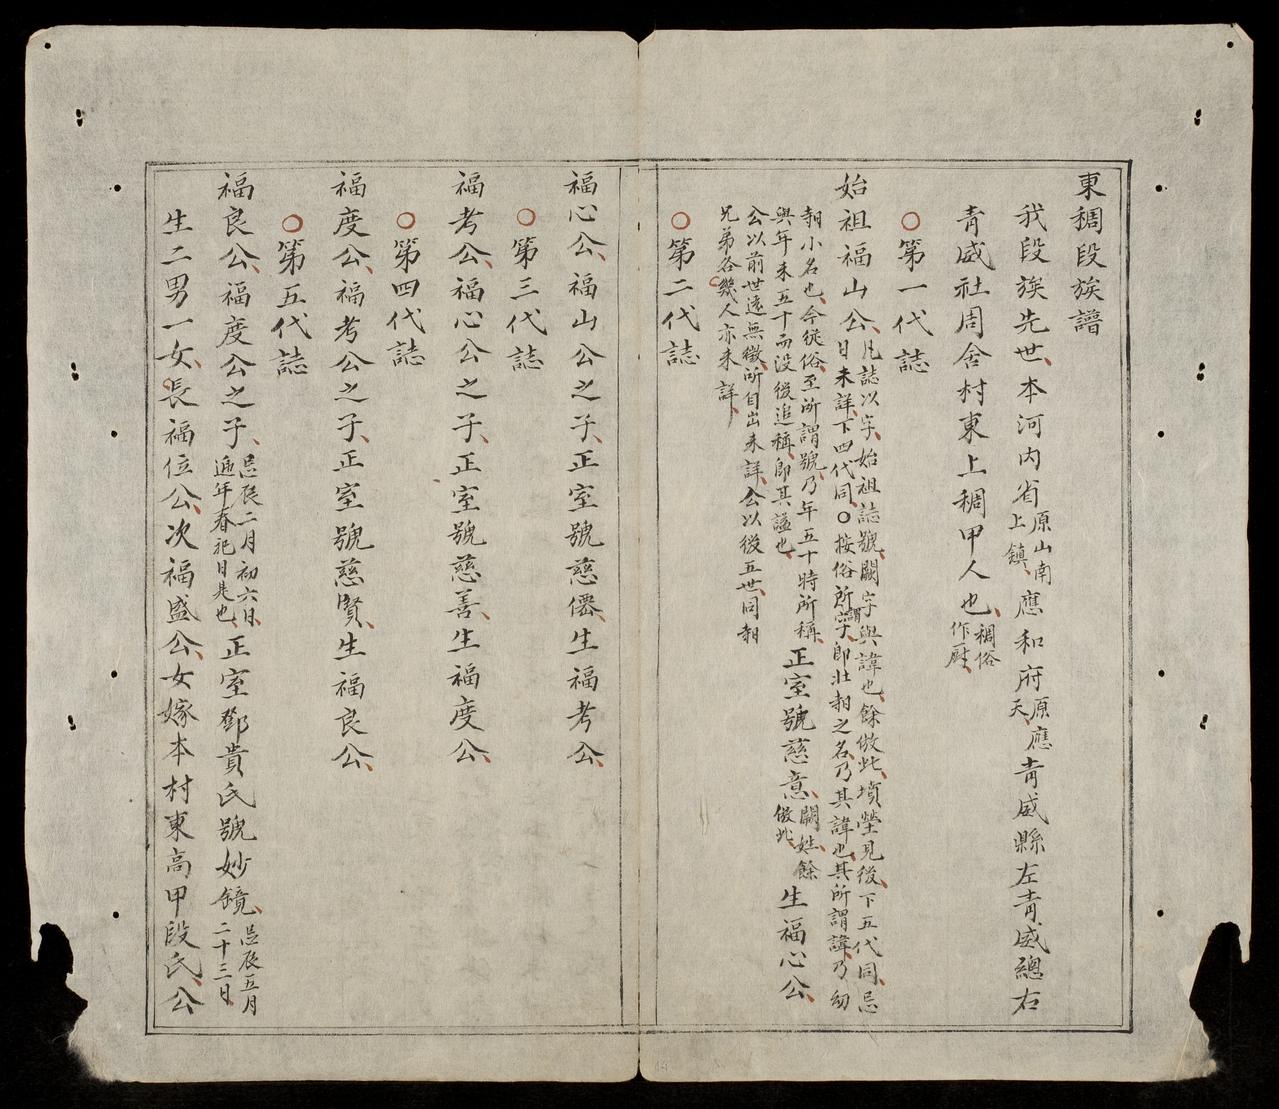 東稠段族譜
我段族先世本河内省原山南上鎮應和府原應天青威縣左青威總右
青威社周舍村東上稠甲人也稠俗作厨
第一代誌
始祖福山公凡誌以字始祖誌號闕字與諱也餘倣此墳塋見後下五代同忌
日未詳下四代同○按俗所謂字即壯𠊛之名乃其諱也其所謂諱乃幼
𠊛小名也今從俗至所謂號乃年五十時所稱
與年未五十而没後追稱即其謚也正室號慈意闕姓餘倣此生福心公
公以前世遠無徵所自出未詳公以後五世同𠊛
兄弟各幾人亦未詳
第二代誌
福心公福山公之子正室號慈僊生福考公
第三代誌
福考公福心公之子正室號慈善生福度公
第四代誌
福度公福考公之子正室號慈賢生福良公
第五代誌
福良公福度公之子忌辰二月初六日遞年春祀日是也正室鄧貴氏號妙鏡忌辰五月二十三日
生二男一女長福位公次福盛公女嫁本村東高甲段氏公